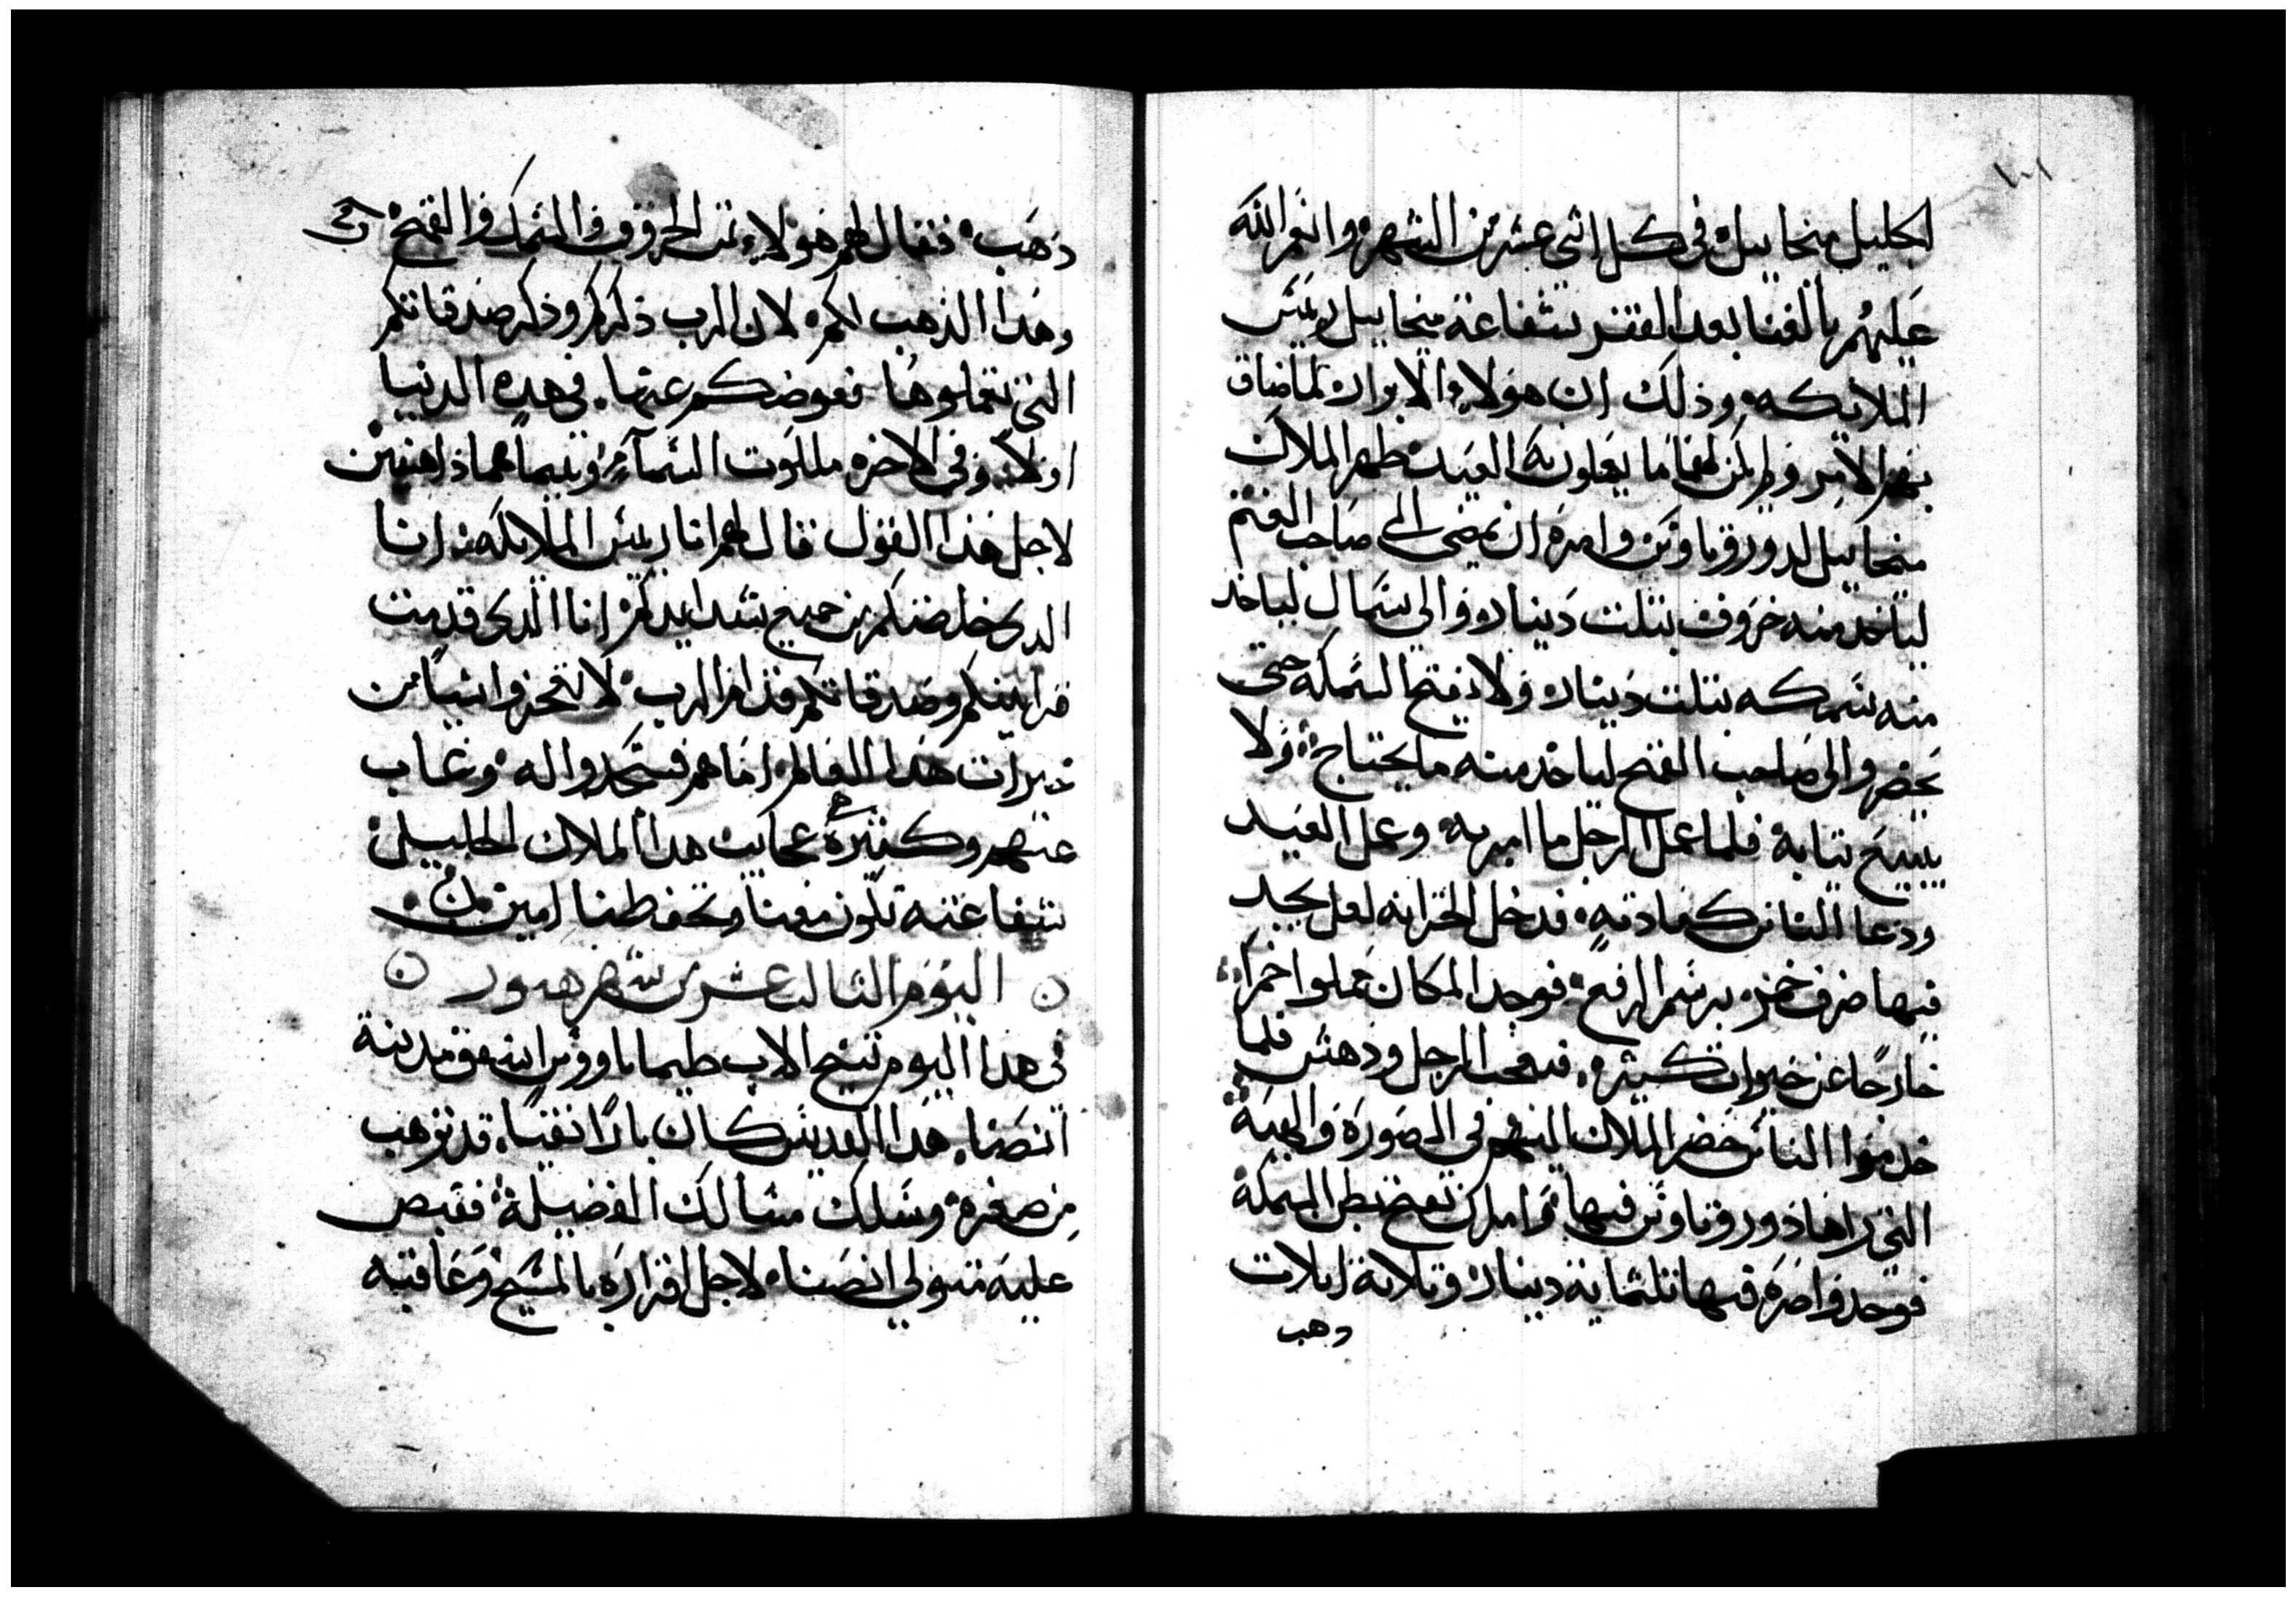 ١٠١
الجليل ميخاييل في كل اثني عشر من الشهر وانعم الله
عليهم بالغنا بعد الفقر بشفاعة ميخاييل رييس
الملايكه وذلك ان هولاء الابرار لما ضاق
بهم الامر ولم يكن لهما ما يعملون به العيد ظهر الملاك
ميخاييل لدوروثاوس وامره ان يمضي الى صاحب الغنم
لياخد منه خروف بتلت دينار والي سماك لياخد
منه سمكه بتلت دينار ولا يفتح السمكه حتى
يحضر والى صاحب القمح لياخد منه ما يحتاج ولا
يبيع تيابه فلما عمل الرجل ما امر به وعمل العيد
ودعا الناس كعادته فدخل الخزانه لعل يجد
فيها خمر برسم الرفع فوجد المكان مملوا خمرا
خارجا عن خيرات كثيره فتعجب الرجل ودهش فلما
خدموا الناس حضر الملاك اليهم في الصورة والهية
التي راها دوروثاوس فيها وامره بفتح بطن السمكة
فوجدوا فيها ثلثماية دينار وثلاثة ثلاث
دهب
دهب فقال لهم هولاء تمن الخروف والسمك والقمح
وهذا الذهب لكم لان الرب ذكركم وذكر صدقاتكم
التي تعملوها فعوضكم عنها في هده الدنيا
اولا وفي الاخره ملكوت السماء وبينما هما ذاهلين
لاجل هذا القول قال لهم انا رييس الملايكه انا
الدي خلصتكم من جميع شدايدكم انا الدي قدمت
قرابينكم وصدقاتكم قدام الرب لا تعوزوا شيا من
خيرات هذا العالم اما هم فسجدوا له وغاب
عنهم وكثيرة عجايب هدا الملاك الجليل
شفاعته تكون معنا وتحفظنا امين
اليوم الثالث عشر من شهر هتور
في هدا اليوم تنيح الاب طيماثاوس اسقف مدينة
انصنا هدا القديس كان بارا نقيا قد ترهب
من صغره وسلك مسالك الفضيلة فقبض
عليه متولي انصنا لاجل اقراره بالمسيح وعاقبه